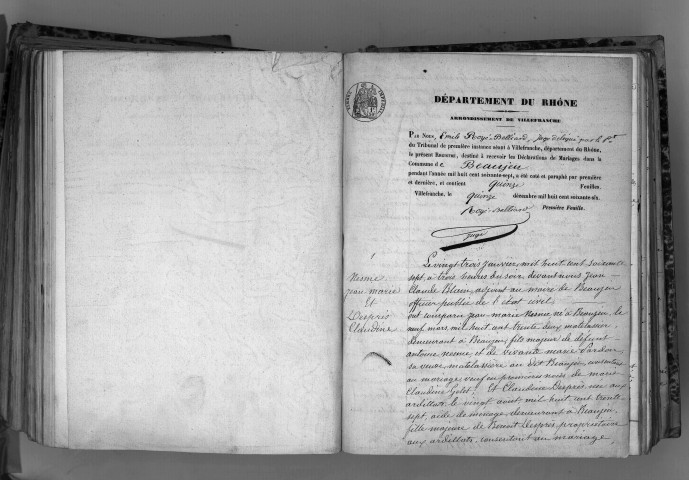 DÉPARTEMENT DU RHÔNE
ARRONDISSEMENT DE VILLEFRANCHE
PAR NOUS, Emile Royé-Belliard, Juge délégué par le Pt
du Tribunal de première instance séant à Villefranche, département du Rhône,
le présent REGISTRE, destiné à recevoir les Déclarations de Mariages dans la
Commune de Beaujeu
pendant l'année mil huit cent soixante-sept, a été coté et paraphé par première
et dernière, et contient quinze Feuilles.
Villefranche, le quinze décembre mil huit cent soixante-six.
Royé-Belliard Première Feuille.
Juge
1
Nesme
jean marie
Et
Desprès
Claudine
Le vingt trois janvier mil huit cent soixante
sept, à trois heures du soir devant nous Jean
Claude Blain, adjoint au maire de Beaujeu
officier public de l'état civil
ont comparu jean marie Nesme né à Beaujeu le
neuf mars mil huit cent trente deux matelassier,
demeurant à Beaujeu, fils majeur de défunt
antoine nesme et de vivante marie Pardon,
sa veuve, matelassière au dit Beaujeu, consentante
au mariage veuf en premières noces de marie
Claudine Gelet; Et Claudine Desprès née aux
ardillats le vingt aout mil huit cent trente
sept, aide de ménage, demeurant à Beaujeu,
fille majeure de Benoit Desprès propriétaire
aux ardillats, consentant au mariage